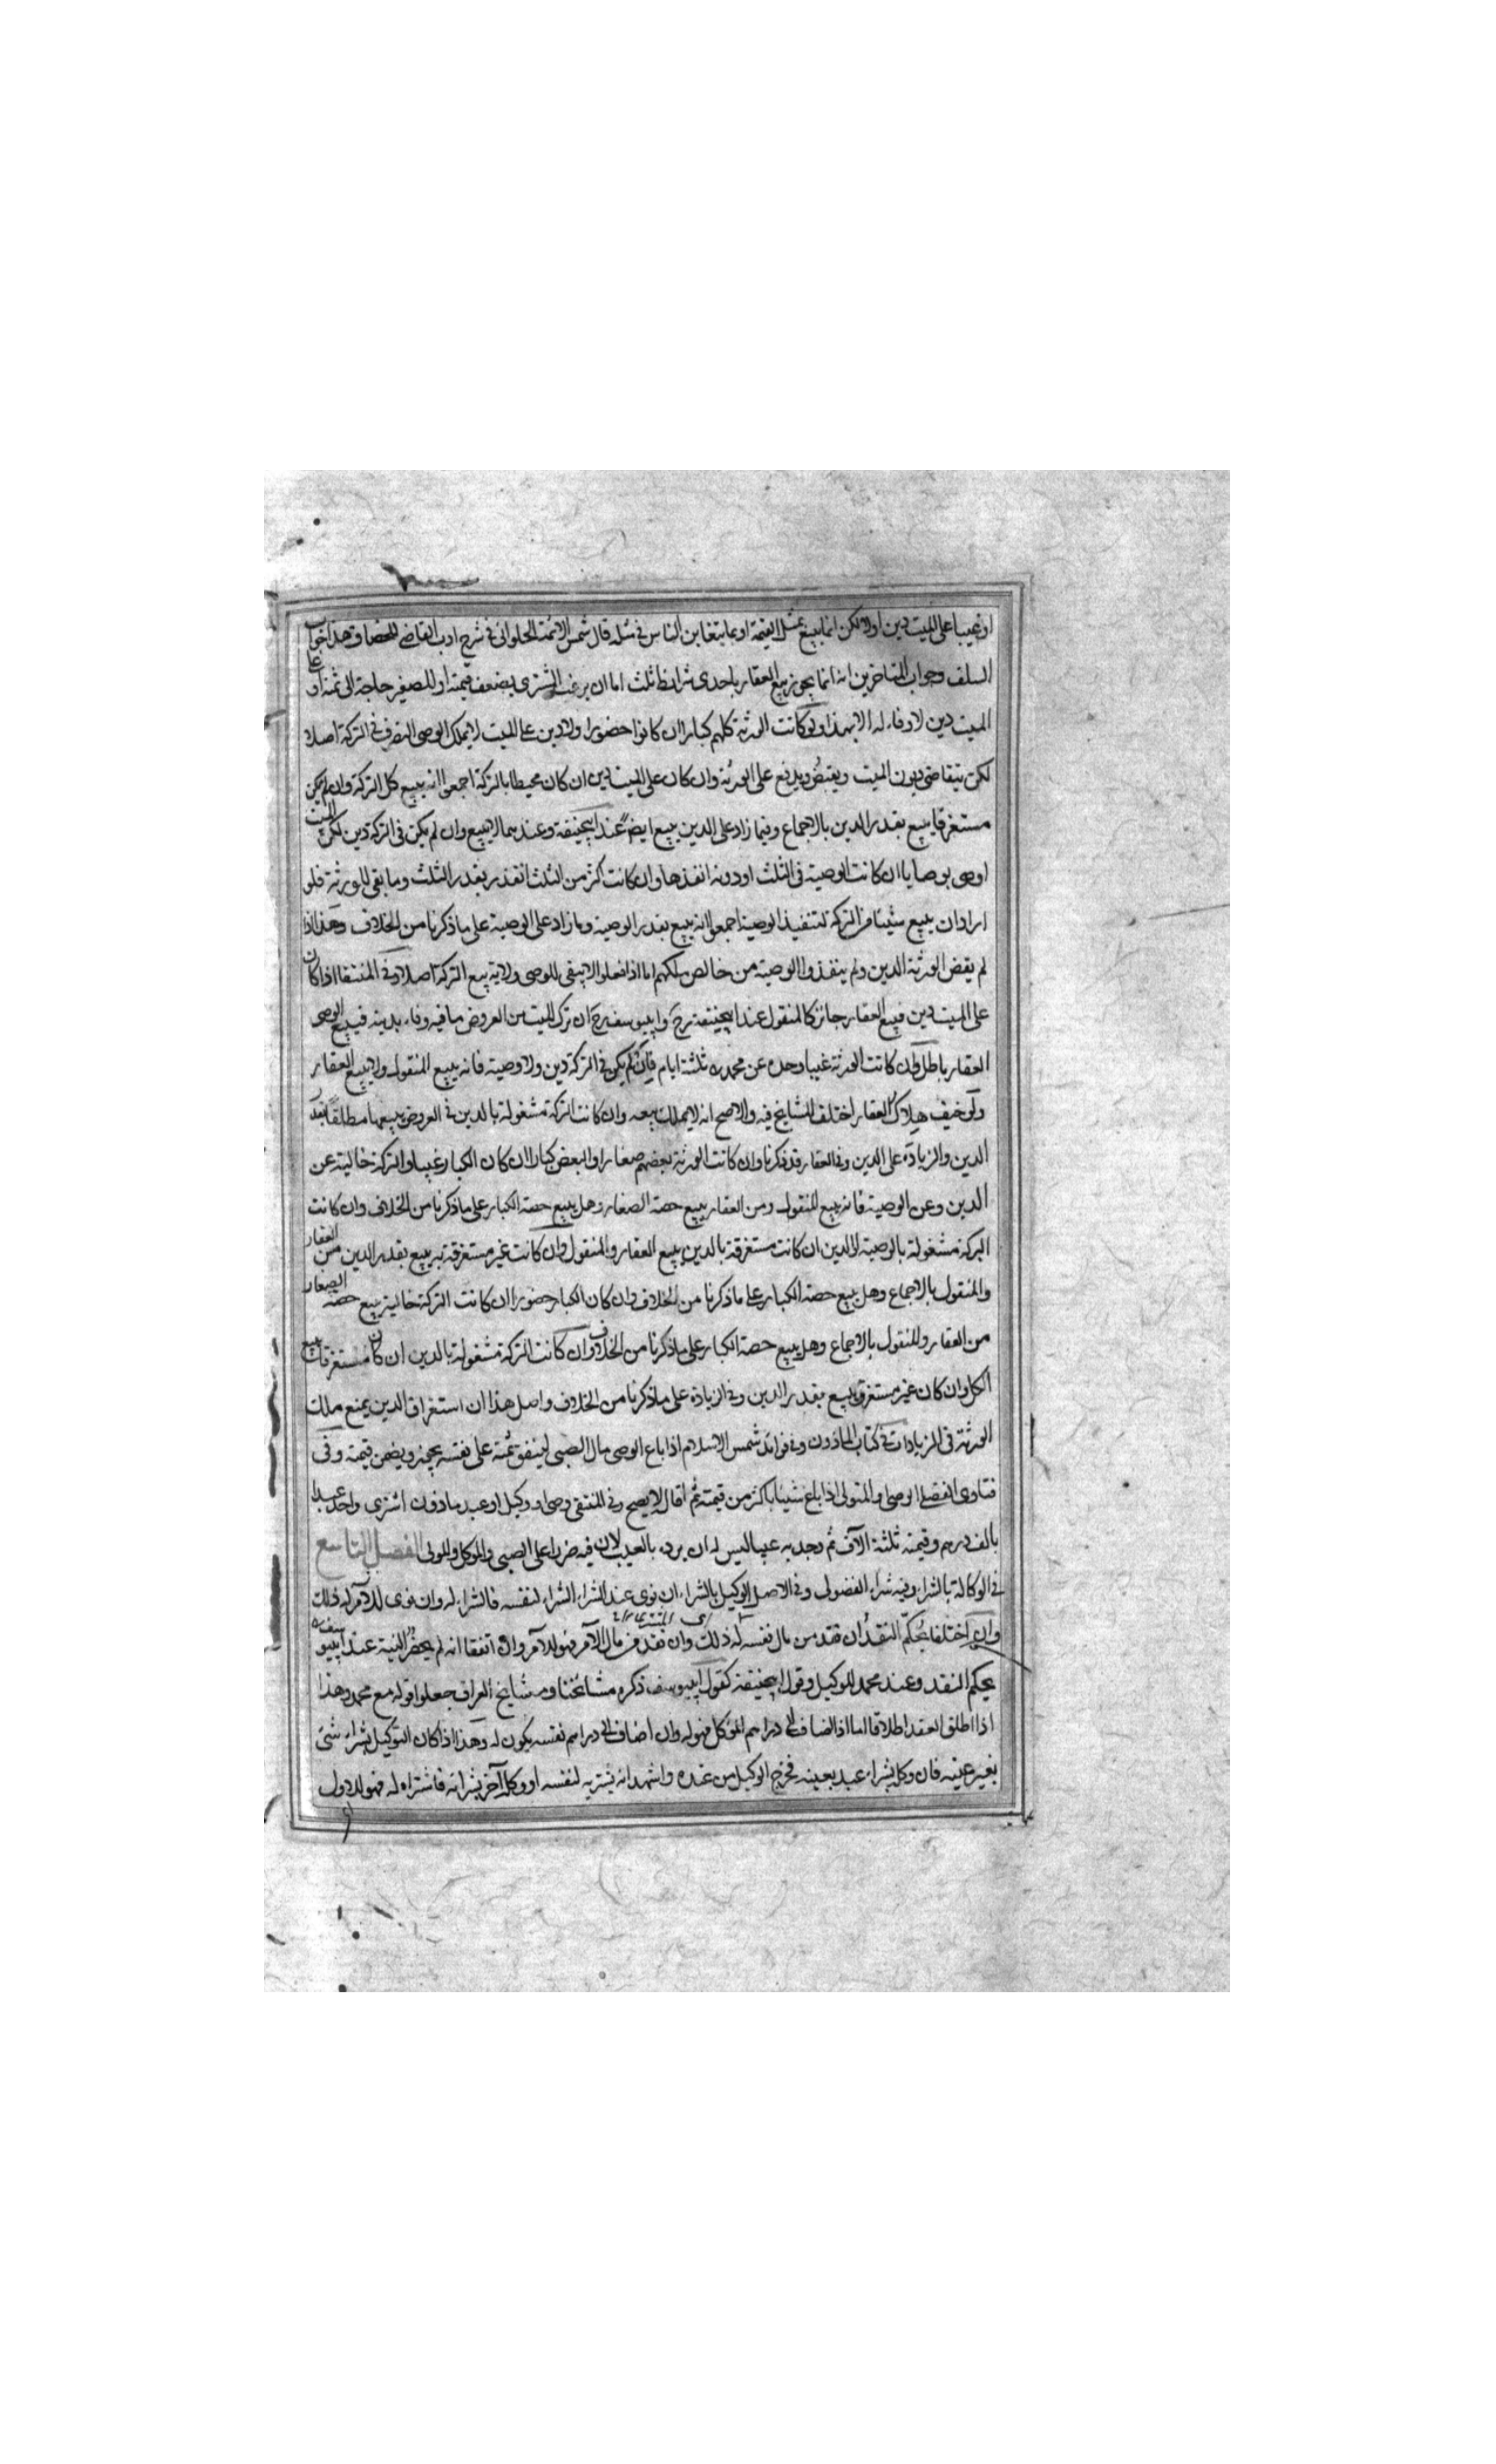 او غيبا على الميت دين اولا ولكن انما يبيع بمثل القيمة او بما يتغابن الناس فى مثله قال شمس الائمة الحلوانى فى شرح ادب القاضى للخصاف وهذا جواب
السلف وجواب المتاخرين انه انما يجوز بيع العقار باحدى شرائط ثلث اما ان يرغب المشترى بضعف قيمته او للصغير حاجة الى ثمنه او على
الميت دين لا وفاء له الا بهذا ولو كانت الورثة كلهم كبارا ان كانوا حضورا ولا دين على الميت لا يملك الوصى التصرف فى التركة اصلا
لكن يتقاضى ديون الميت ويقبض ويدفع على الورثة وان كان على الميت دين ان كان محيطا بالتركة اجمعوا انه يبيع كل التركة وان لم يكن
مستغرقا يبيع بقدر الدين بالاجماع وفيما زاد على الدين يبيع ايضا عند ابيحنيفة وعندهما لا يبيع وان لم يكن فى التركة دين لكن الميت
اوصى بوصايا ان كانت الوصية فى الثلث او دونه انفذها وان كانت اكثر من الثلث انفذ بقدر الثلث وما بقى للورثة فلو
اراد ان يبيع شيئا من التركة لتنفيذ الوصية اجمعوا انه يبيع بقدر الوصية وما زاد على الوصية على ما ذكرنا من الخلاف وهذا اذا
لم يقض الورثة الدين ولم ينفذوا الوصية من خالص ملكهم اما اذا فعلوا لا يبقى للوصى ولاية بيع التركة اصلا وفى المنتقا اذا كان
على الميت دين فبيع العقار جائز كالمنقول عند ابيحنيفة رح وابيوسف رح ان ترك الميت من العروض ما فيه وفاء بدينه فبيع الوصى
العقار باطل وان كانت الورثة غيبا وحده عن محمد ره ثلثة ايام فان لم يكن فى التركة دين ولا وصية فانه يبيع المنقول ولا يبيع العقار
ولو خيف هلاك العقار اختلف المشايخ فيه والاصح انه لا يملك بيعه وان كانت التركة مشغولة بالدين فى العروض يبيعها مطلقا بقدر
الدين والزيادة على الدين وفى العقار قد ذكرنا وان كانت الورثة بعضهم صغارا والبعض كبارا ان كان الكبار غيبا والتركة خالية عن
الدين وعن الوصية فانه يبيع المنقول ومن العقار يبيع حصة الصغار وهل يبيع حصة الكبار على ما ذكرنا من الخلاف وان كانت
التركة مشغولة بالوصية او الدين ان كانت مستغرقة بالدين يبيع العقار والمنقول وان كانت غير مستغرقة به يبيع بقدر الدين من العقار
والمنقول بالاجماع وهل يبيع حصة الكبار على ما ذكرنا من الخلاف وان كان الكبار حضورا ان كانت التركة خالية يبيع حصة الصغار
من العقار والمنقول بالاجماع وهل يبيع حصة الكبار على ما ذكرنا من الخلاف وان كانت التركة مشغولة بالدين ان كان مستغرقا يبيع
الكل وان كان غير مستغرق يبيع بقدر الدين وفى الزيادة على ما ذكرنا من الخلاف واصل هذا ان استغراق الدين يمنع ملك
الورثة فى الزيادات فى كتاب الماذون وفى فوائد شمس الاسلام اذا باع الوصى مال الصبى لينفق ثمنه على نفسه يجوز ويضمن قيمته وفى
فتاوى الفضلى الوصى او المتولى اذا باع شيئا باكثر من قيمته ثم اقال لا يصح وفى المنتقى وصى او وكيل او عبد ماذون اشترى واحد عبدا
بالف درهم وقيمته ثلثة الآف ثم وجد به عيبا ليس له ان يرده بالعيب لان فيه ضررا على الصبى والموكل والمولى الفصل التاسع
فى الوكالة بالشراء وفيه شراء الفضولى وفى الاصل الوكيل بالشراء ان نوى عند الشراء الشراء لنفسه فالشراء له وان نوى للآمر له ذلك
وان اختلفا يحكم النقد ان نقد من مال نفسه له ذلك وان نقد من مال الآمر فهو للآمر وان اتفقا انه لم يحضره النية عند ابيوسف ره
يحكم النقد وعند محمد للوكيل وقول ابيحنيفة كقول ابيوسف ذكره مشائخنا ومشايخ العراق جعلوا قوله مع محمد وهذا
اذا اطلق العقد اطلاقا اما اذا اضاف الى دراهم الموكل فهو له وان اضاف الى دراهم نفسه يكون له وهذا اذا كان التوكيل بشراء شئ
بغير عينه فان وكله بشراء عبد بعينه فخرج الوكيل من عنده واشهد انه يشتريه لنفسه او وكله آخر بشرائه فاشتراه له فهو للاول